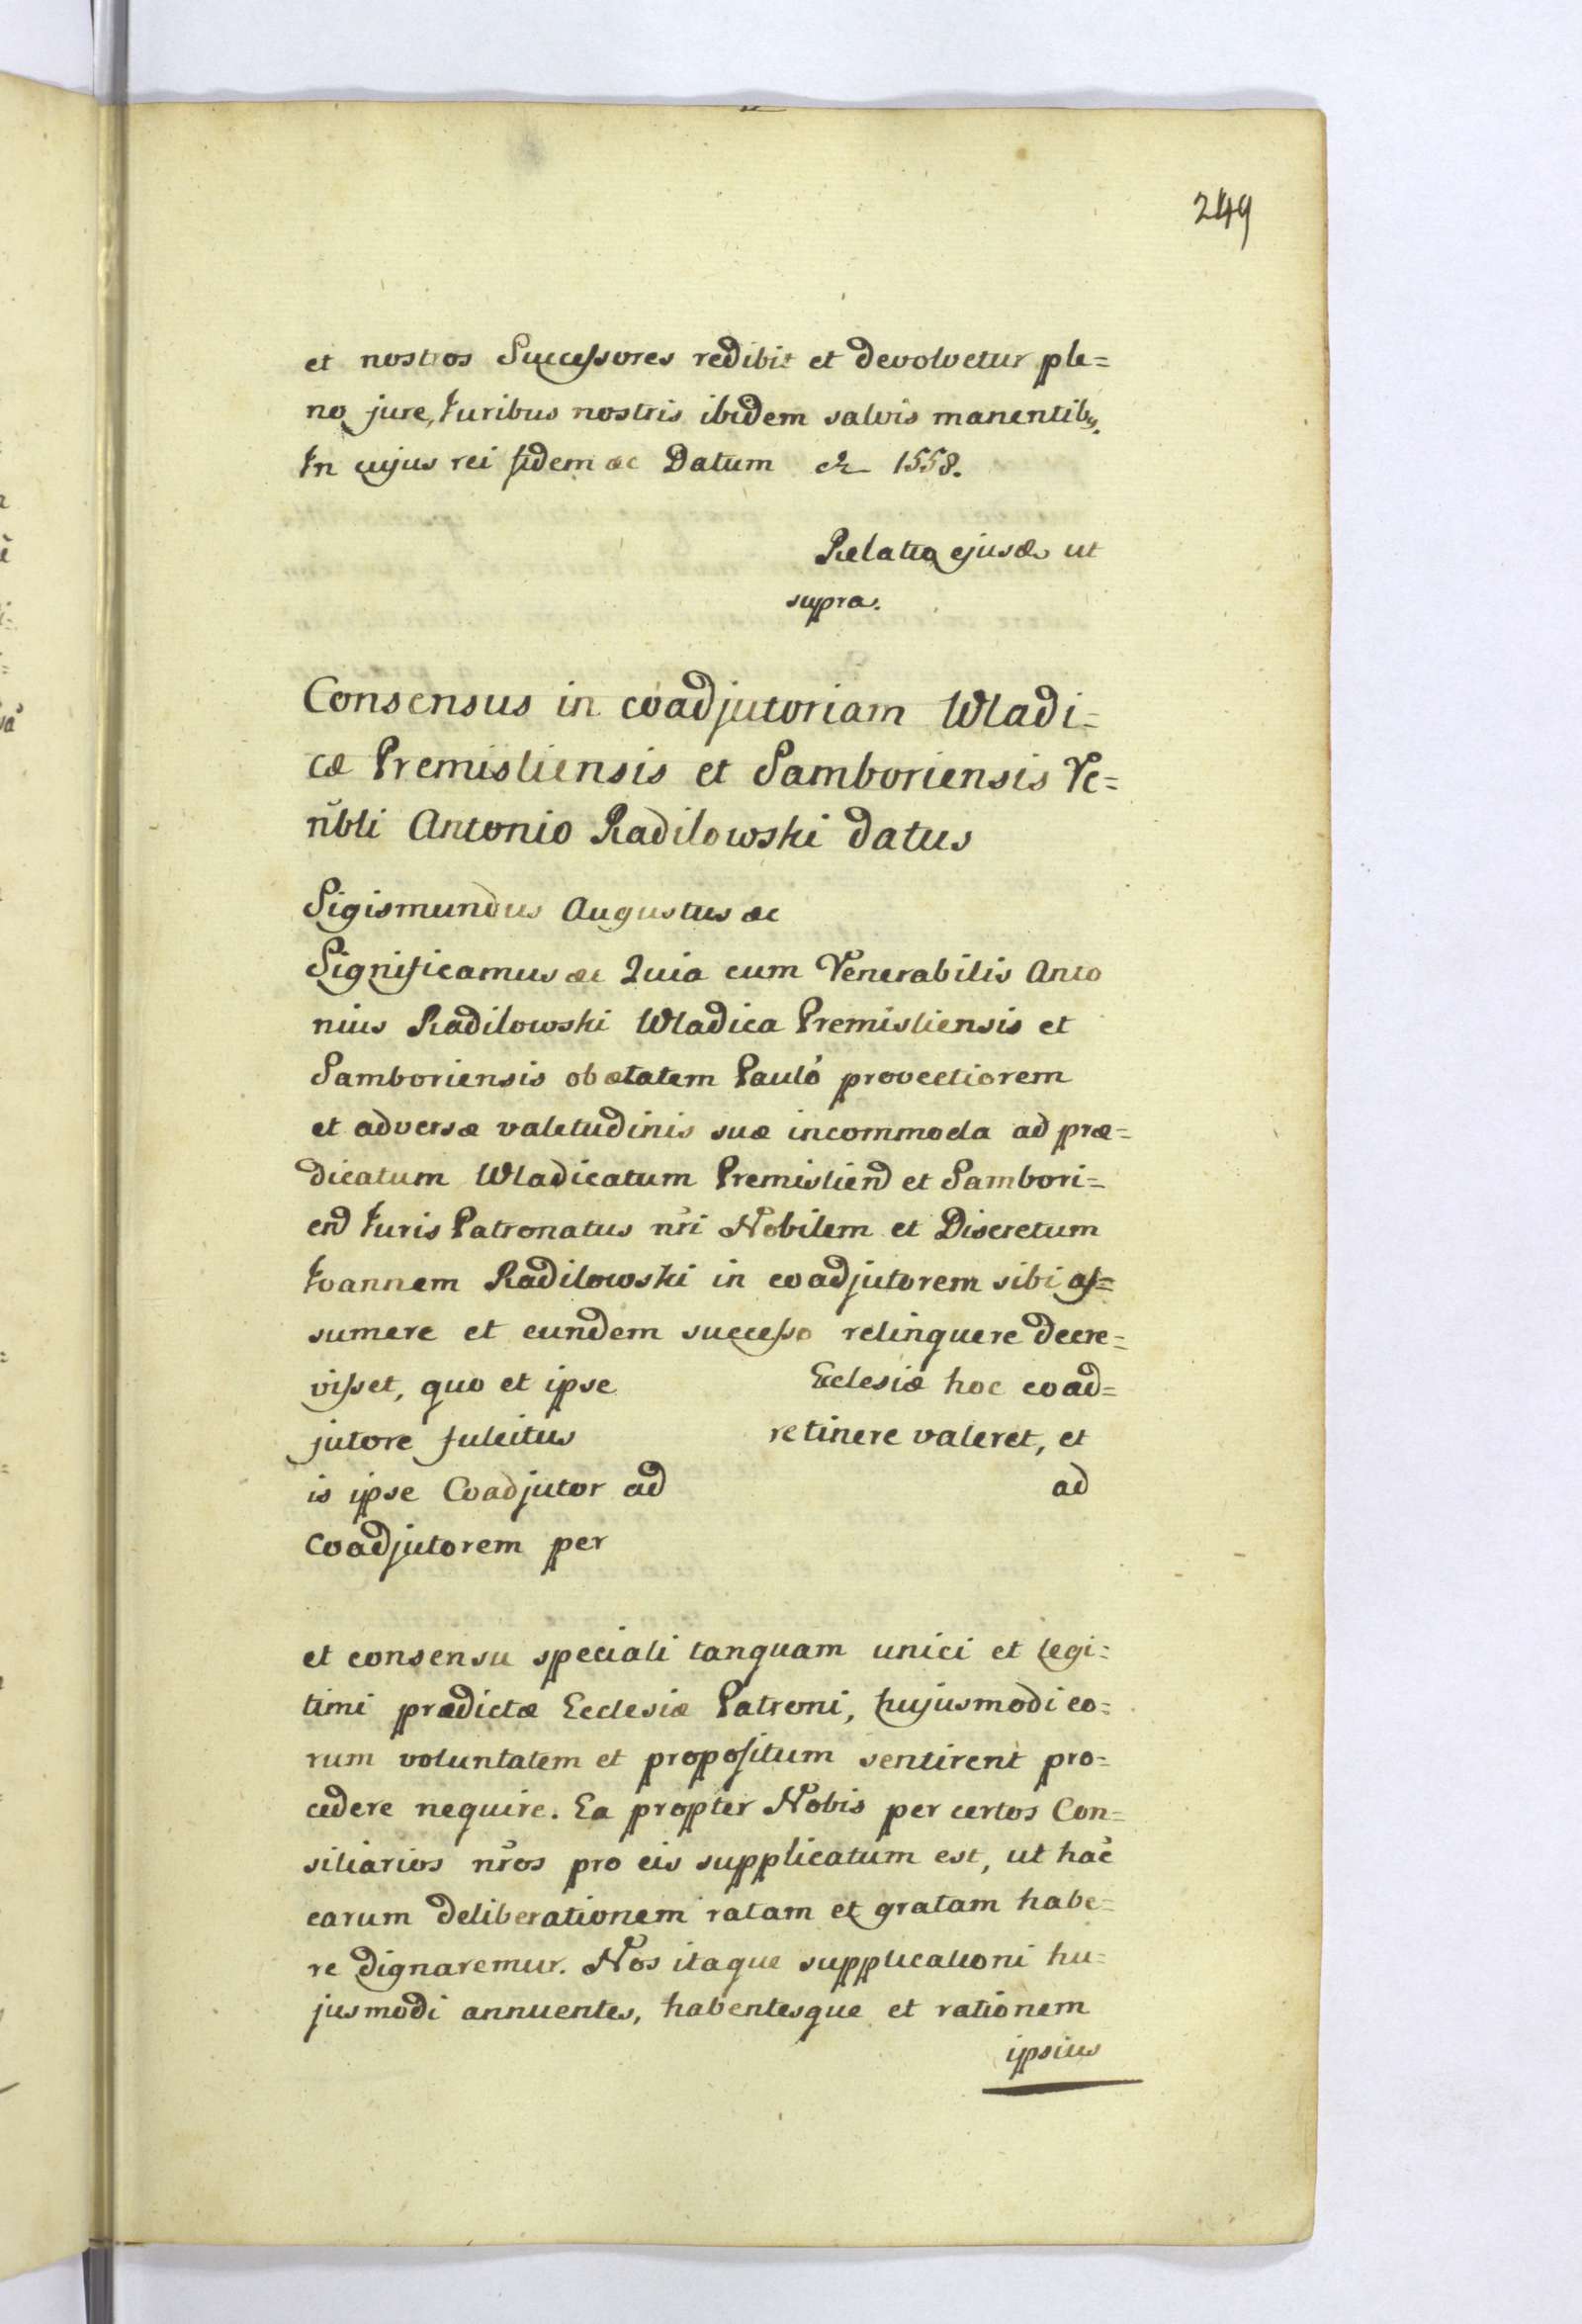 249
et nostros Successores redibit et devolvetur ple=
no jure, Iuribus nostris ibidem salvis manentibꝫ.
In cujus rei fidem æc Datum etc 1558.
Relatio ejusd ut
supra.
Consensus in coadjutoriam Wladi=
cæ Premisliensis et Samboriensis Ve=
nbli Antonio Radilowski datus
Sigismundus Augustus æc
Significamus æc Quia cum Venerabilis Anto
nius Radilowski Wladica Premisliensis et
Samboriensis ob ætatem Pauló provectiorem
et adversæ valetudinis suæ incommoda ad præ=
dicatum Wladicatum Premislien et Sambori=
en Iuris Patronatus nri Nobilem et Discretum
Ioannem Radilowski in coadjutorem sibi aſ=
sumere et eundem succeſso relinquere decre=
viſset, quo et ipse Ecclesiæ hoc coad=
jutore fulcitus retinere valeret, et
is ipse Coadjutor ad ad
Coadjutorem per
et consensu speciali tanquam unici et legi=
timi prædictæ Ecclesiæ Patroni, hujusmodi eo=
rum voluntatem et propoſitum sentirent pro=
cedere nequire. Ea propter Nobis per certos Con=
siliarios nros pro eis supplicatum est, ut hac
earum deliberationem ratam et gratam habe=
re dignaremur. Nos itaque supplicationi hu=
jusmodi annuentes, habentesque et rationem
ipsius